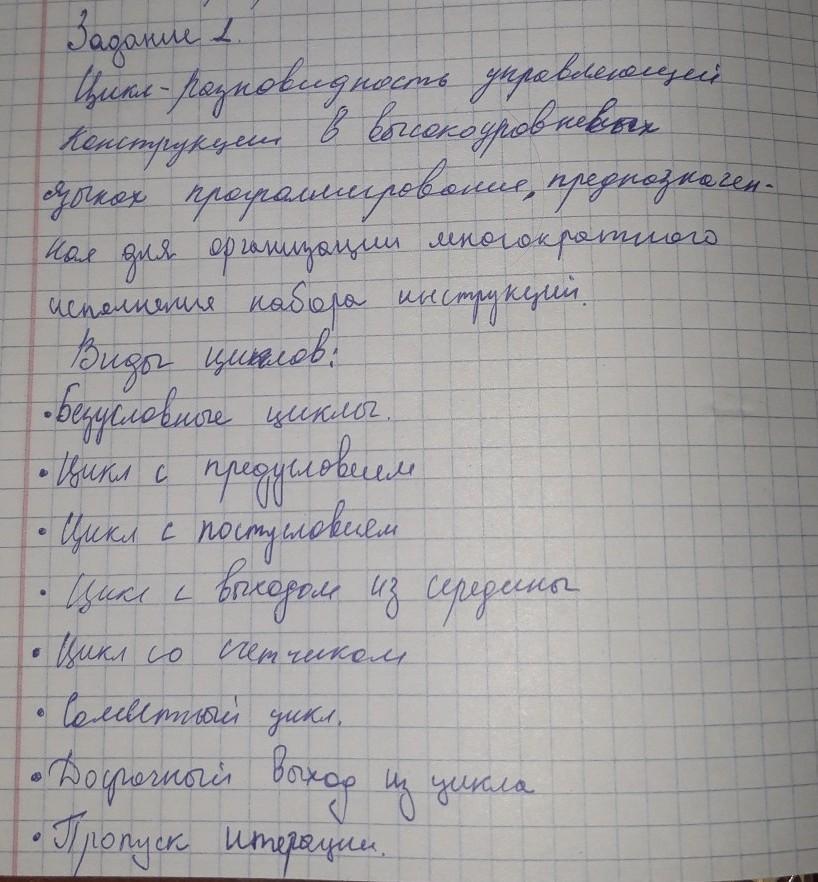 Задание 1.
Цикл - разновидность управляющей
конструкции в высокоуровневых
языках программирования, предназначен-
ная для организации многократного
исполнения набора инструкций.
Виды циклов:
• Безусловные циклы.
• Цикл с предусловием
• Цикл с постусловием
• Цикл с выходом из середины
• Цикл со счетчиком
• Совместный цикл.
• Досрочный выход из цикла
• Пропуск итерации.